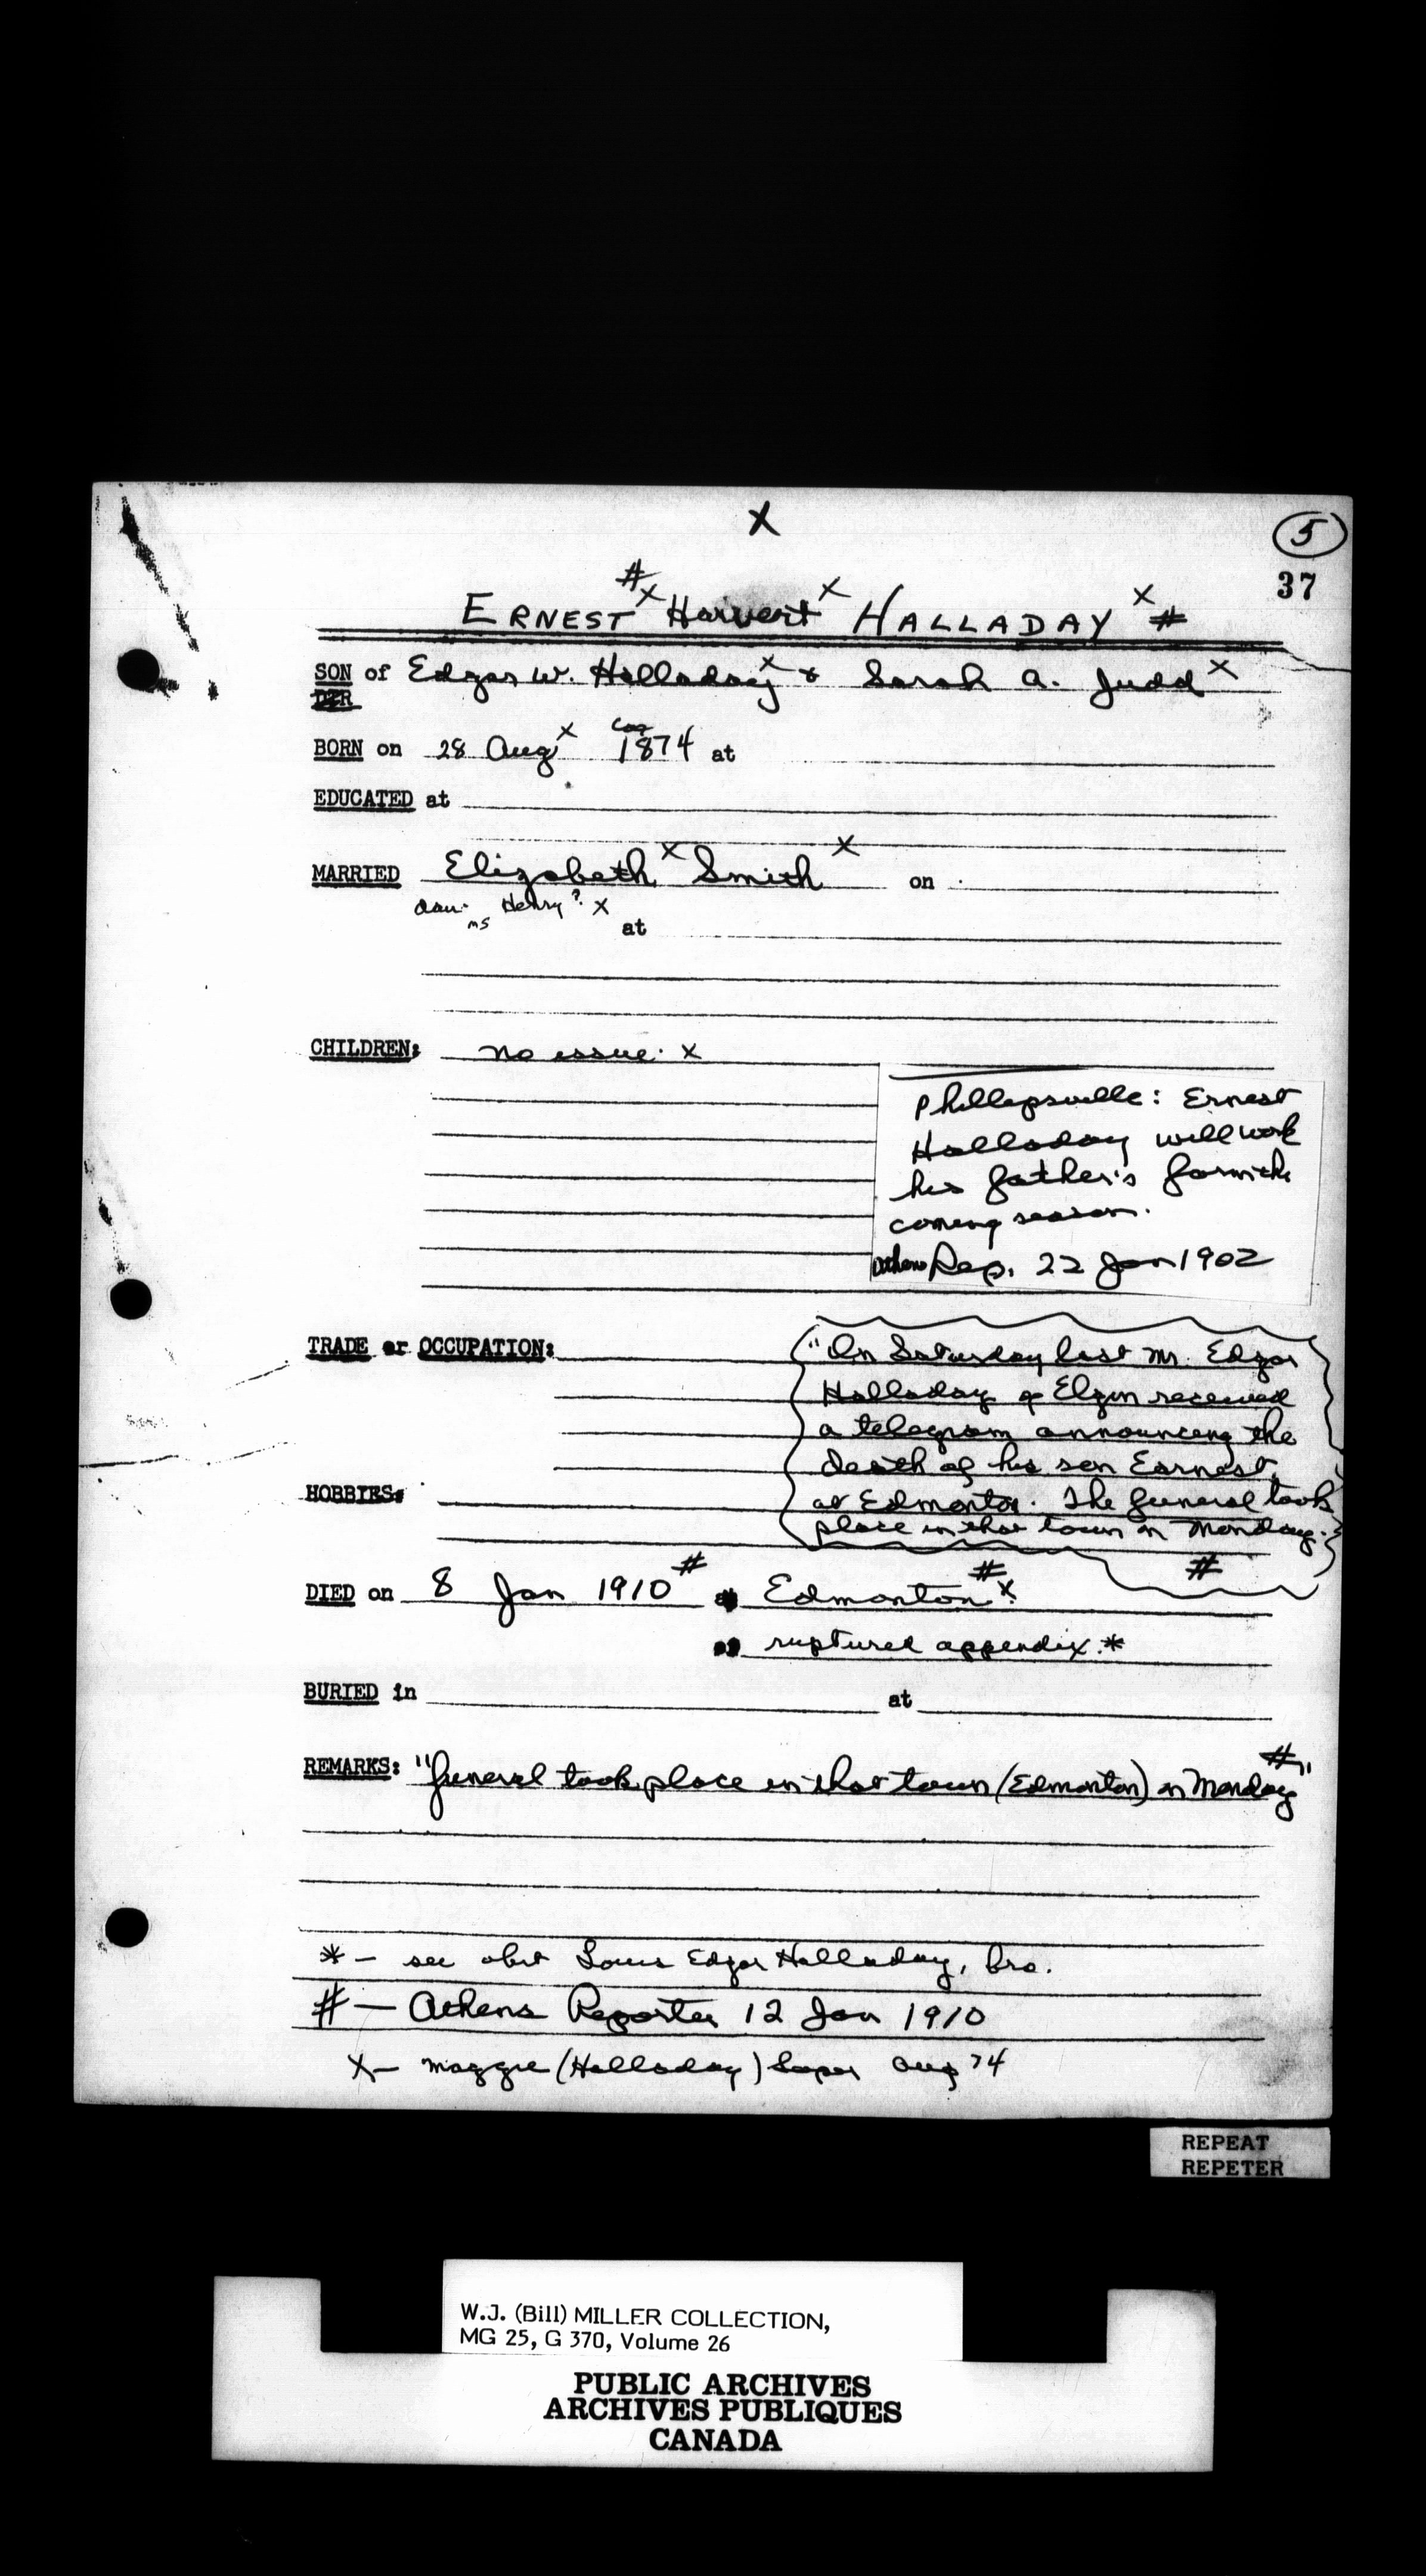 X
5
37
# x x x
ERNEST Harvert HALLADAY #
SON of Edgar W. Halladay x & Sarah A. Judd x
DTR
BORN on 28 Aug x 1874 at
EDUCATED at
MARRIED Elizabeth x Smith x on
dau. Henry ? x
ms
at
CHILDREN: no issue. x
Phillipsville: Ernest
Halladay will work
his father's farm the
coming season.
Athens Rep. 22 Jan 1902
TRADE or OCCUPATION:
"On Saturday last Mr. Edgar
Halladay of Elgin received
a telegram announcing the
death of his son Earnest,
at Edmonton. The funeral took
place in that town on Monday."
#
HOBBIES:
DIED on 8 Jan 1910 # Edmonton # x
ruptured appendix. *
BURIED in at
REMARKS: "funeral took place in that town (Edmonton) on Monday #"
* – see obit Louis Edgar Halladay, bro.
# – Athens Reporter 12 Jan 1910
X – Maggie (Halladay) Soper Aug 74
REPEAT
REPETER
W.J. (Bill) MILLER COLLECTION,
MG 25, G 370, Volume 26
PUBLIC ARCHIVES
ARCHIVES PUBLIQUES
CANADA